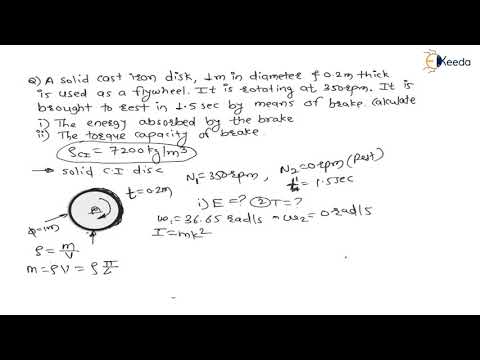 Keeda
Q) A solid cast iron disk, 1m in diameter & 0.2m thick
is used as a flywheel. It is rotating at 350rpm. It is
brought to rest in 1.5sec by means of brake. Calculate
i) The energy absorbed by the brake
ii) The torque capacity of brake.
ρCI = 7200kg/m³
→ solid C.I disc
N₁=350rpm, N₂=0rpm(Rest)
t=0.2m
t=1.5sec
i) E=? ② T=?
ϕ=1m
ω₁=36.65 rad/s - ω₂=0rad/s
I=mk²
ρ=m/V
m=ρV=ρ π/